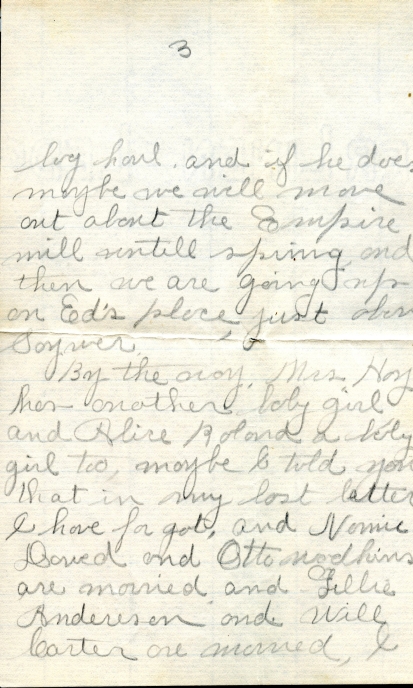 3
log haul. and if he does
maybe we will move
out about the Empire
mill untill spring and
then we are going up
on Ed's place just abov
Soywer.
By the way, Mrs. Hoy
has another baby girl
and Alice Roland a baby
girl too, maybe I told you
that in my last letter
I have for got, and Nomie
Daved and Otto
are married and Lillie
Andereson and Will
Carter are married, I